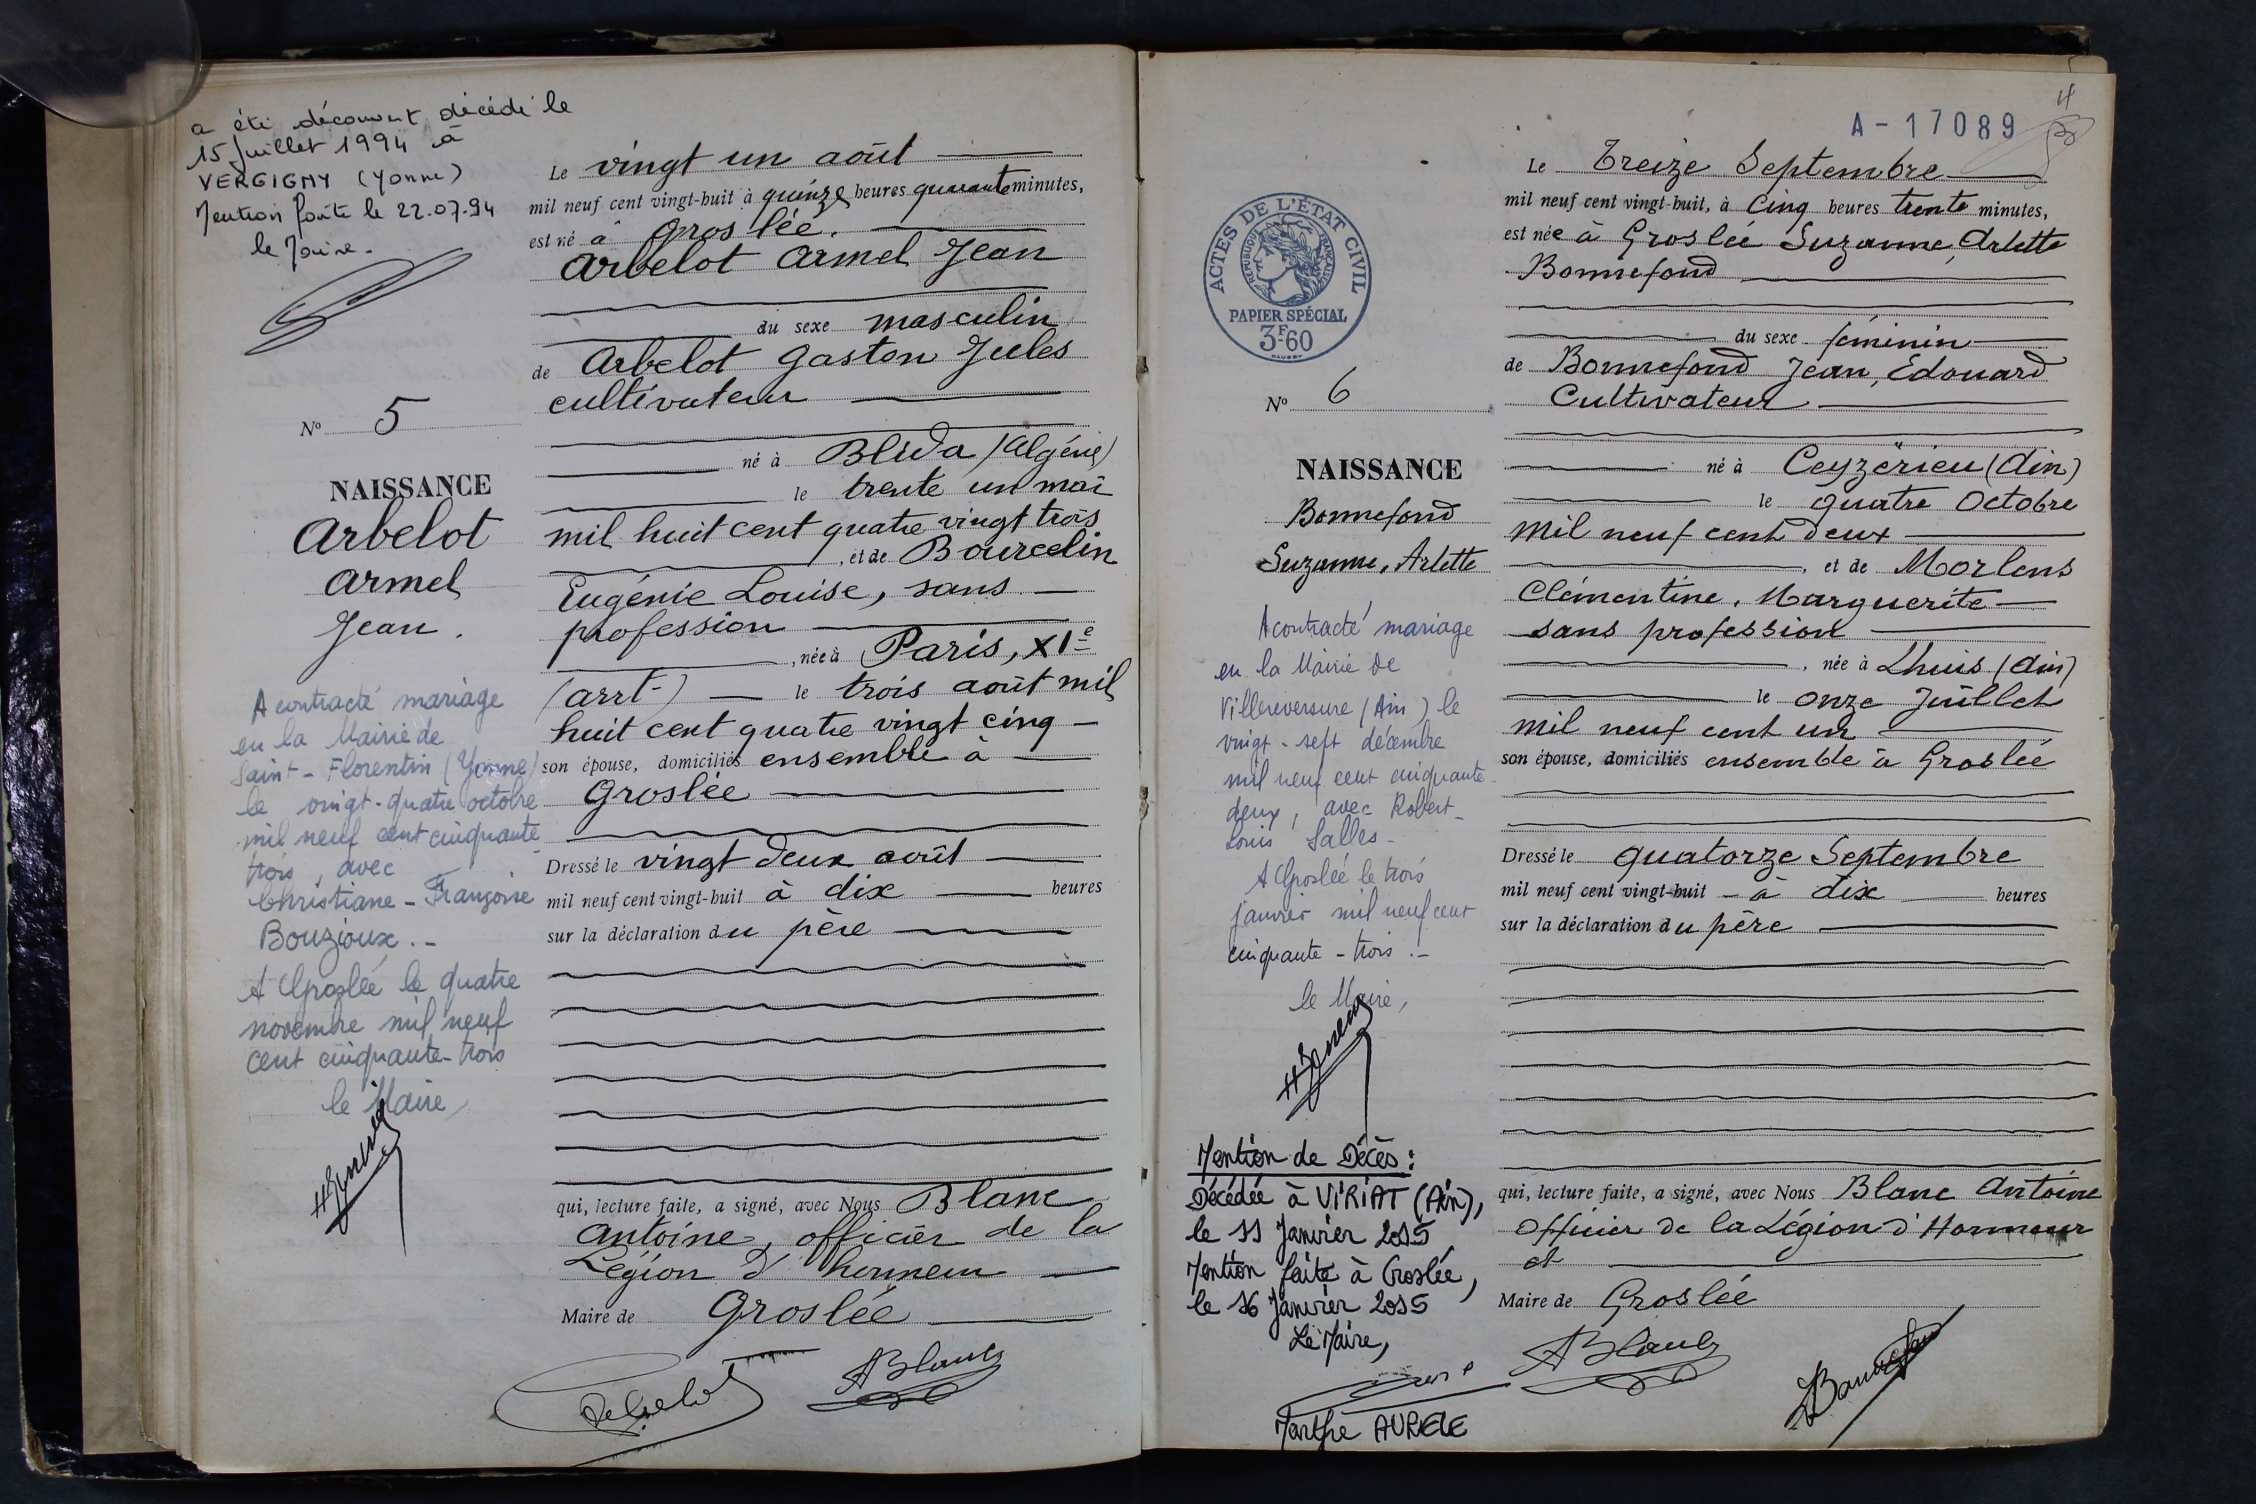 a été découvert décédé le
15 Juillet 1994 à
VERGIGNY (Yonne)
Mention faite le 22.07.94
le Maire.
Le vingt un août
mil neuf cent vingt-huit à quinze heures quarante minutes,
est né à Groslée.
Arbelot Armel Jean
du sexe masculin
de Arbelot Gaston Jules
cultivateur
né à Blida (Algérie)
le trente un mai
mil huit cent quatre vingt trois
, et de Bourcelin
Eugénie Louise, sans
profession
, née à Paris, XIe
(arrt-) le trois août mil
huit cent quatre vingt cinq
son épouse, domiciliés ensemble à
Groslée
Dressé le vingt deux août
mil neuf cent vingt-huit à dix heures
sur la déclaration du père
qui, lecture faite, a signé, avec Nous Blanc
Antoine, officier de la
Légion d'honneur
Maire de Groslée
ABlanc
No 5
NAISSANCE
Arbelot
Armel
Jean.
A contracté mariage
en la Mairie de
Saint-Florentin (Yonne)
le vingt-quatre octobre
mil neuf cent cinquante
trois, avec
Christiane-Françoise
Bouzioux.-
A Groslée le quatre
novembre mil neuf
cent cinquante-trois
le Maire,
4
A-17089
ACTES DE L'ÉTAT CIVIL
RÉPUBLIQUE FRANÇAISE
PAPIER SPÉCIAL
3F60
Le Treize Septembre
mil neuf cent vingt-huit, à Cinq heures trente minutes,
est née à Groslée Suzanne, Arlette
Bonnefond
du sexe féminin
de Bonnefond Jean, Edouard
Cultivateur
né à Ceyzérieu (Ain)
le quatre Octobre
mil neuf cent deux
, et de Morlens
Clémentine, Marguerite
sans profession
, née à Lhuis (Ain)
le onze Juillet
mil neuf cent un
son épouse, domiciliés ensemble à Groslée
Dressé le quatorze Septembre
mil neuf cent vingt-huit - à dix heures
sur la déclaration du père
qui, lecture faite, a signé, avec Nous Blanc Antoine
Officier de la Légion d'Honneur
et
Maire de Groslée
ABlanc
No 6
NAISSANCE
Bonnefond
Suzanne, Arlette
A contracté mariage
en la Mairie de
Villereversure (Ain) le
vingt-sept décembre
mil neuf cent cinquante-
deux, avec Robert-
Louis Salles-
A Groslée le trois
janvier mil neuf cent
cinquante-trois.-
le Maire,
Mention de Décès:
Décédée à VIRIAT (Ain),
le 11 Janvier 2015
Mention faite à Groslée,
le 16 Janvier 2015
Le Maire,
Marthe AURELE